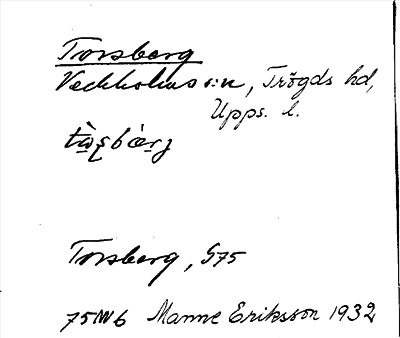 Torsberg
Veckholms s:n, Trögds hd,
Upps. l.
Torsberg, G75
75 NV 6 Manne Eriksson 1932